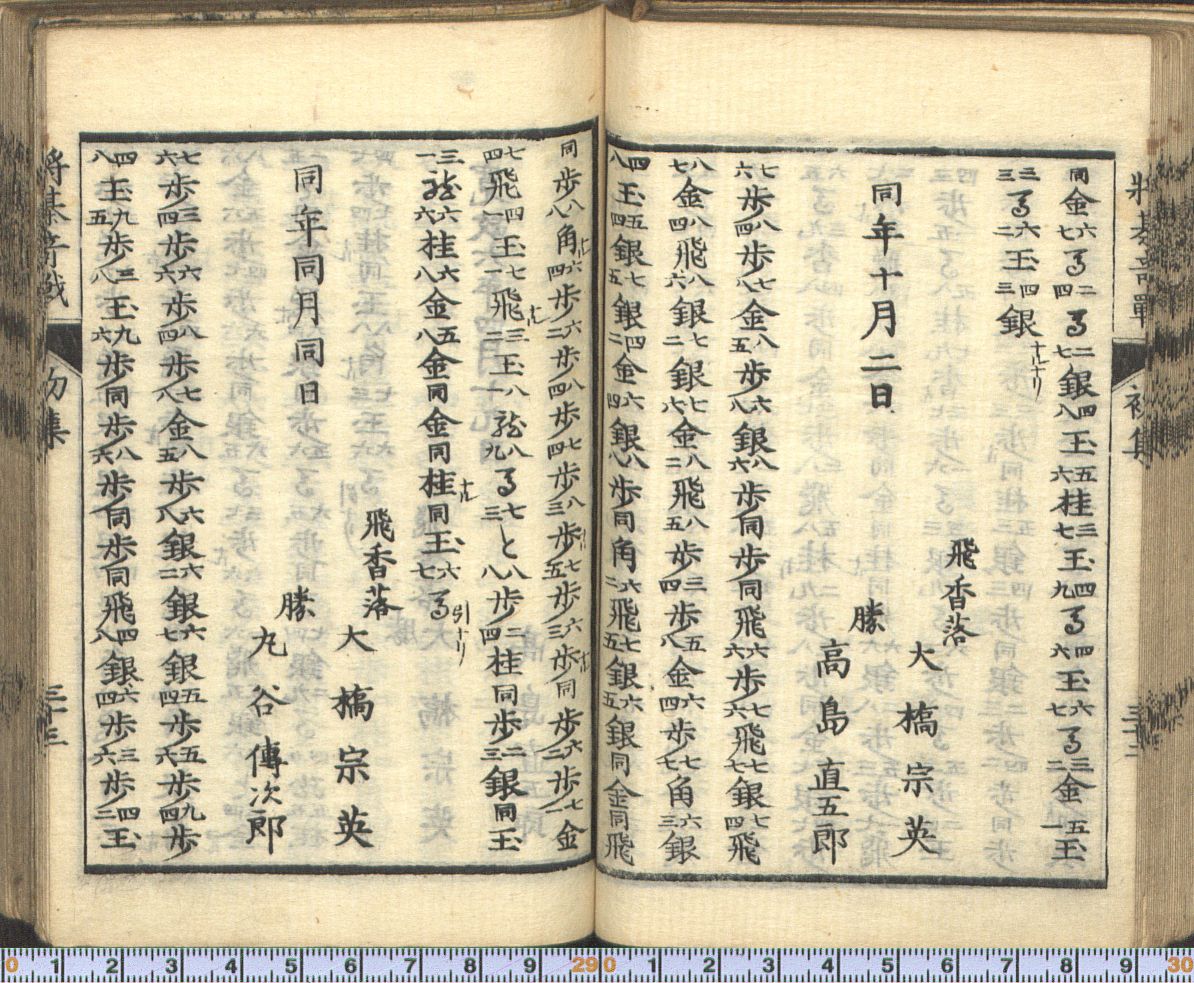 將棊奇戰　初集　三十二
同金六七馬二四馬二七銀四八玉五六桂三七玉四九馬四六玉六七馬三二金五一玉
三三馬六二玉四三銀
同年十月二日
飛香落　大橋宗英
勝　高島直五郎
七六歩八四歩七八金八五歩六八銀八六歩同歩同飛六六歩七六飛七七銀七四飛
八七金八四飛八六銀七二銀七八金八二飛八五歩三四歩五八金六四歩七七角六三銀
四八玉五四銀七五銀四二金六四銀八八歩同角六二飛七五銀六五銀同金同飛
同歩八八角成六四歩六二歩八四歩七四歩八三歩七五歩六三歩成同歩六二歩七金
七四飛四一玉七一飛成三二玉八龍八九馬七三と八八歩二四桂同歩二三銀同玉
三一龍六六桂六八金五八金同金同桂成同玉六七馬引
同年同月同日
飛香落　大橋宗英
勝　丸谷傳次郎
七六歩三四歩六六歩八四歩七八金八五歩六八銀六二銀六七銀五四歩五六歩九四歩
四八玉九五歩三八玉九六歩同歩八六歩同歩同飛四八銀六四歩三六歩四二玉
將棊奇戰　初集　三十三
0 1 2 3 4 5 6 7 8 9 29 0 1 2 3 4 5 6 7 8 9 30